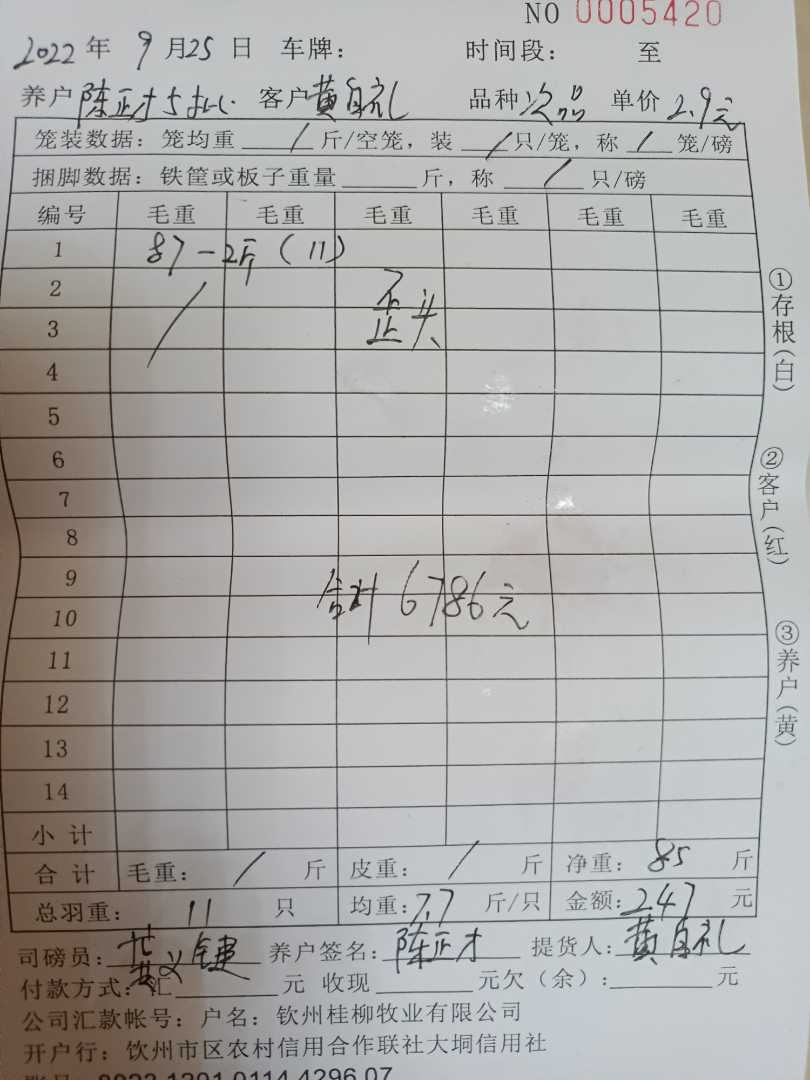 NO 0005420
2022 年 9 月 25 日 车牌： 时间段： 至
养户 陈正才 客户 黄自礼 品种 次品 单价 2.9元
笼装数据：笼均重 / 斤/空笼，装 / 只/笼，称 / 笼/磅
捆脚数据：铁筐或板子重量 斤，称 / 只/磅
编号 毛重 毛重 毛重 毛重 毛重 毛重
1 87-2斤（11）
2 /
3 歪头
4
5
6
7
8
9
10 合计 6786元
11
12
13
14
小计
合计 毛重： / 斤 皮重： / 斤 净重： 85 斤
总羽重： 11 只 均重：7.7 斤/只 金额：247 元
司磅员： 养户签名：陈正才 提货人：黄自礼
付款方式：汇 元 收现 元欠（余）： 元
公司汇款帐号：户名：钦州桂柳牧业有限公司
开户行：钦州市区农村信用合作联社大垌信用社
①存根（白）
②客户（红）
③养户（黄）